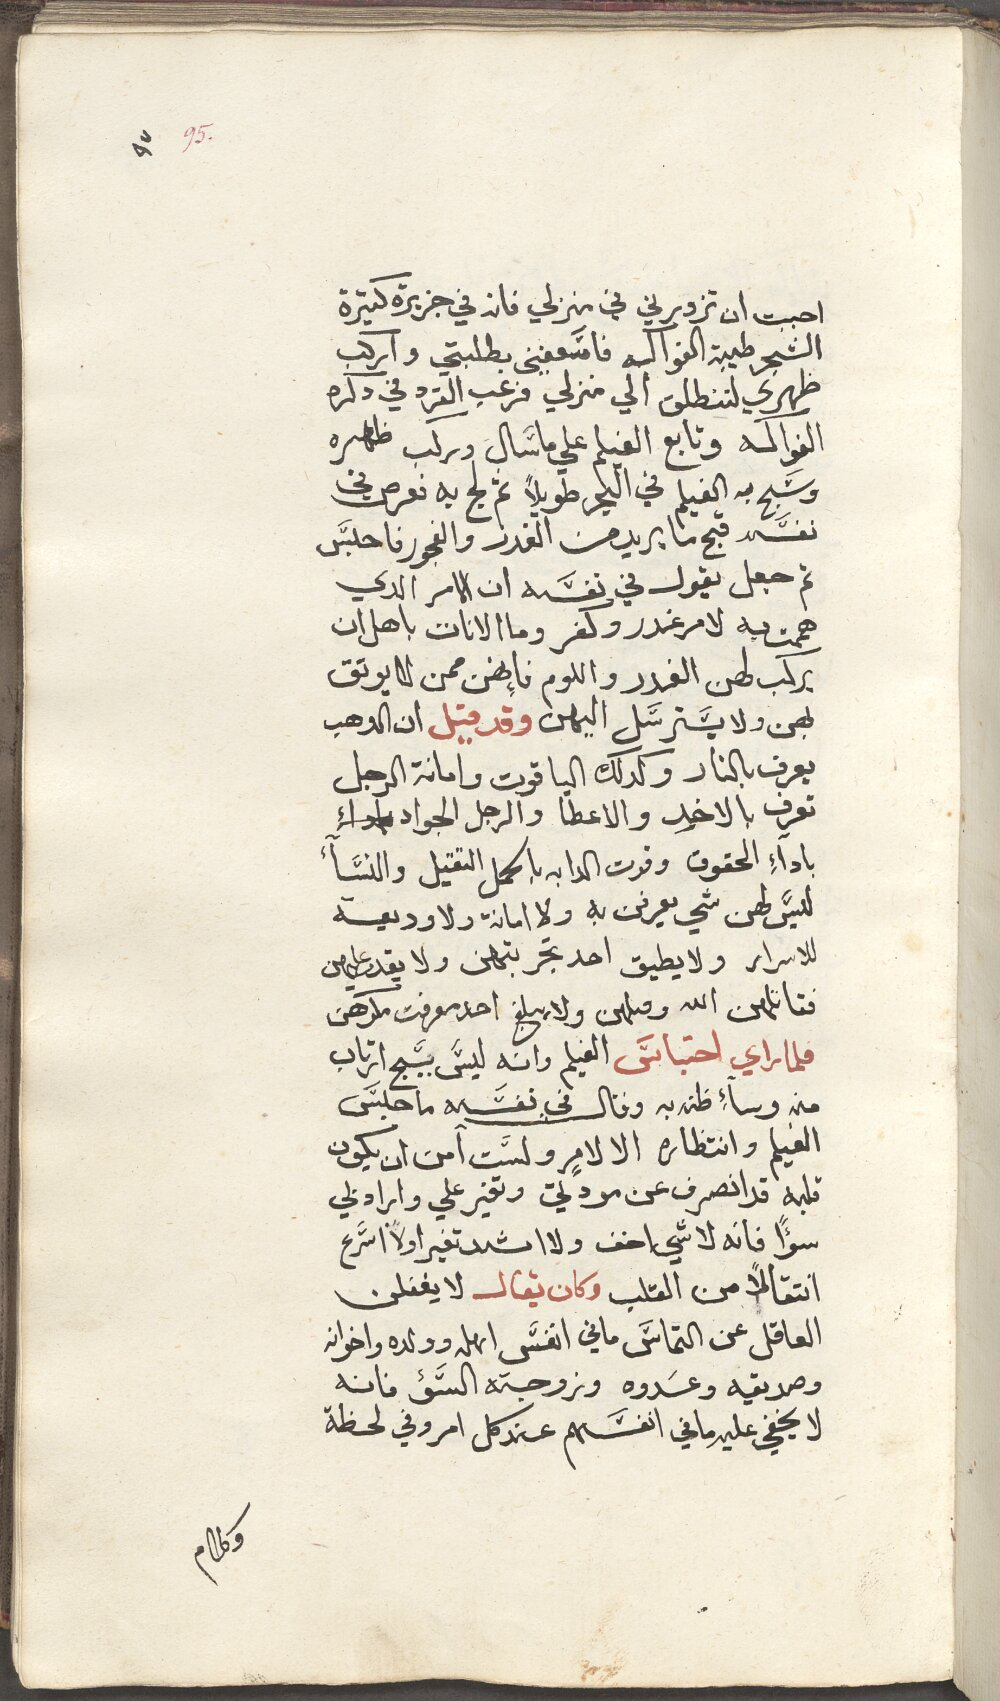 ٩٥ 95.
احببت ان تزورني في منزلي فانه في جزيرة كتيرة
الشجر طيبة الفواكه فاسعفني بطلبتي واركب
ظهري لننطلق الي منزلي فرغب القرد في دكره
الفواكه وتابع الغيلم علي ما سال وركب ظهره
وسبح به الغيلم في البحر طويلاً ثم لج به فعرض في
نفسه قبح ما يريد من الغدر والفجور فاحتبس
تم جعل يقول في نفسه ان الامر الدي
هممت به لامر غدر وكفر وما الانات باهل ان
يركب لهن الغدر واللوم فانهن ممن لا يوتق
بهن ولا يسترسل اليهن وقد قيل ان الدهب
يعرف بالنار وكدلك الياقوت وامانة الرجل
تعرف بالاخد والاعطا والرجل الجواد
بادآءِ الحقوق وقوت الدابه باكمل التقيل والنسآء
ليس لهن شي يعرفن به ولا امانة ولا وديعة
للاسرار ولا يطيق احد تجربتهن ولا يقدر عليهن
فقاتلهن الله ولا يبلغ احد معرفت مكرهن
فلما راي احتباس الغيلم وانه ليس يسبح ارتاب
منه وسآء ظنه به وقال في نفسه ما حبس
الغيلم وانتظاره الا لامرٍ ولست آمن ان يكون
قلبه قد انصرف عن مودتي وتغير علي واراد لي
سوًا فانه لا شي اخف ولا اشد تغيراً ولا اسرع
انتقالاً من القلب وكان يقال لا يغفلن
العاقل عن التماس ما في انفس اهله وولده واخوانه
وصديقه وعدوه وزوجته السؤ فانه
لا يخفي عليه ما في انفسهم عند كل امر وفي لحظة
وكلام